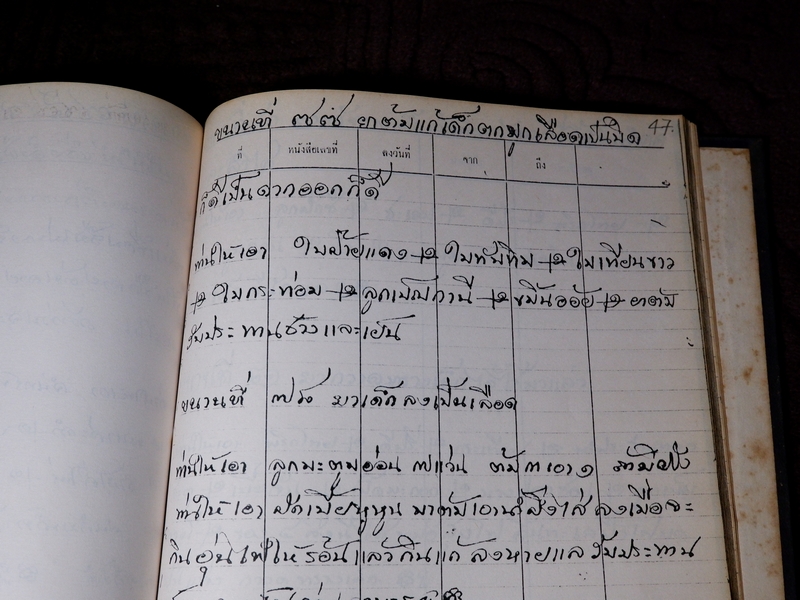 ขนานที่ ๗๘ ยาต้มแก้เด็กตกมูกเลือดเป็นบิด 47.
ที่ หนังสือเลขที่ ลงวันที่ จาก ถึง
ก็ดีเป็น ออกก็ดี
ท่านให้เอา ใบฝ้ายแดง ๑ ใบทับทิม ๑ ใบเทียนขาว
๑ ใบกระท่อม ๑ ลูกเบ็ญกานี ๑ ขมิ้นอ้อย ๑ ยาต้ม
รับประทานเช้าและเย็น
ขนานที่ ยาเด็กลงเป็นเลือด
ท่านให้เอา ลูกมะตูมอ่อน ๗ แว่น ต้ม ๓ เอา ๑
ท่านให้เอา มาต้มเอาน้ำ ใส่ลงเมื่อจะ
กินอุ่นไฟให้ร้อนแล้วกินแก้ลงหายแล รับประทาน